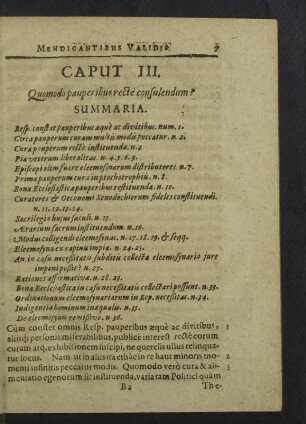 MENDICANTIBUS VALIDIS. 7
CAPUT III.
Quomodo pauperibus rectè consulendum?
SUMMARIA.
Resp. constat pauperibus æquè ac divitibus. num. 1.
Circa pauperum curam multis modis peccatur. n. 2.
Cura pauperum rectè instituenda. n. 3
Pia veterum liberalitas. n. 4. 5. 6. 9.
Episcopi olim fuere eleemosynarum distributores. n. 7.
Prima pauperum cura in ptochotrophiis. n. 8.
Bona Ecclesiastica pauperibus restituenda. n. 10.
Curatores & Oeconomi Xenodochiorum fideles constituendi.
n. 11. 12. 13. 14.
Sacrilegia hujus sæculi. n. 15.
Ærarium sacrum instituendum n. 16.
Modus colligendi eleemosynas. n. 17. 18. 19. & seqq.
Eleemosyna ex rapinis impia. n. 24. 25.
An in casu necessitatis subditis collecta eleemosynaria jure
imponi possit? n. 27.
Rationes affirmativæ. n. 28. 29.
Bona Ecclesiastica in casu necessitatis collectari possunt. n. 33.
Ordinationum eleemosynariarum in Rep. necessitas. n. 34.
Indigentia hominum inæqualis. n. 35.
De eleemosynæ remissione n. 36.
Cùm constet omnis Resp. pauperibus æquè ac divitibus, 1
aliisq; personis miserabilibus, publicè interest rectè eorum
curam atq; exhibitionem suscipi, ne querelis ullus relinqua-
tur locus. Nam ut in aliis ita et hac in re haut minoris mo- 2
menti infinitis peccatur modis. Quomodo verò cura & ali- 3
mentatio egenorum sit instituenda, variatam Politici quàm
B 2 The-